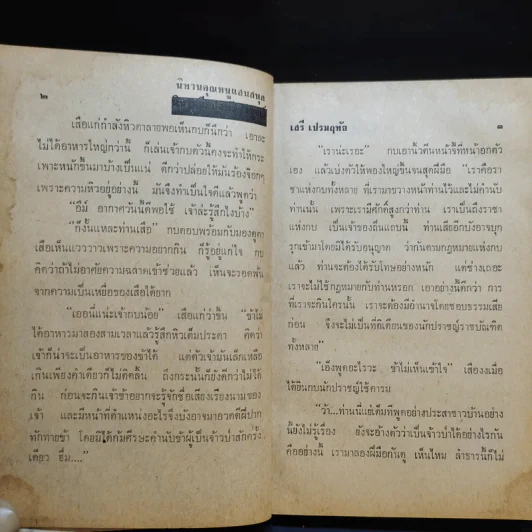 นิทานคุณหนูแสนสนุก
๒
เสือแก่กำลังหิวตาลายพอเห็นกบก็นึกว่า เอาละ
ไม่ได้อาหารใหญ่กว่านี้ ก็เล่นเจ้ากบตัวนี้คงจะทำให้กระ
เพาะหนักขึ้นมาบ้างเป็นแน่ ดีกว่าปล่อยให้มันร้องจ๊อกๆ
เพราะความหิวอยู่อย่างนี้ มันจึงทำเป็นใจดีแล้วพูดว่า
"อืม์ อากาศวันนี้ดีพอใช้ เจ้าล่ะรู้สึกไงบ้าง"
"ก็งั้นแหละท่านเสือ" กบตอบพร้อมกับมองดูตา
เสือเห็นแวววาวเพราะความอยากกิน ก็รู้อยู่แก่ใจ กบ
คิดว่าถ้าไม่อาศัยความฉลาดเข้าช่วยแล้ว เห็นจะรอดพ้น
จากความเป็นเหยื่อของเสือได้ยาก
"เออนี่แน่ะเจ้ากบน้อย" เสือแก่ว่าขึ้น "ข้าไม่
ได้อาหารมาสองสามเวลาแล้วรู้สึกหิวเต็มประดา คิดว่า
เจ้าก็น่าจะเป็นอาหารของข้าได้ แต่ตัวเจ้ามันเล็กเหลือ
เกินเพียงคำเดียวก็ไม่คิดลิ้น ถึงกระนั้นก็ยังดีกว่าไม่ได้
กิน ก่อนจะกินเจ้าข้าอยากจะรู้จักชื่อเสียงเรียงนามของ
เจ้า และมีหน้าที่ตำแหน่งอะไรจึงบังอาจมาอวดดีฝีปาก
ทักทายข้า โดยมิได้ก้มศีรษะคำนับข้าผู้เป็นจ้าวป่าสักครั้ง
เดียว ฮึ่ม...."
เสรี เปรมฤทัย
๓
"เราน่ะเรอะ" กบเอานิ้วตีนหน้าชี้ที่หน้าอกตัว
เอง แล้วเบ่งตัวให้พองใหญ่ขึ้นจนสุดฝีมือ "เราคือรา
ชาแห่งกบทั้งหลาย ที่เรามาขวางหน้าท่านไว้และไม่คำนับ
ท่านนั้น เพราะเรามีศักดิ์สูงกว่าท่าน เราเป็นถึงราชา
แห่งกบ เป็นเจ้าของถิ่นแถบนี้ ท่านเสียอีกบังอาจบุก
รุกเข้ามาโดยมิได้รับอนุญาต ว่ากันตามกฎหมายแห่งกบ
แล้ว ท่านจะต้องได้รับโทษอย่างหนัก แต่ช่างเถอะ
เราจะไม่ใช้กฎหมายกบกับท่านหรอก เอาอย่างนี้ดีกว่า การ
ที่เราจะกินใครนั้น เราจะต้องมีอำนาจโดยชอบธรรมเสีย
ก่อน จึงจะไม่เป็นที่ติเตียนของนักปราชญ์ราชบัณฑิต
ทั้งหลาย"
"เอ็งพูดอะไรวะ ข้าไม่เห็นเข้าใจ" เสืองงเมื่อ
ได้ยินกบนักปราชญ์ใช้คารม
"ว้า...ท่านนี่แย่เต็มที่พูดอย่างประสาชาวบ้านอย่าง
นี้ยังไม่รู้เรื่อง ยังจะอ้างตัวว่าเป็นจ้าวป่าได้อย่างไรกัน
คืออย่างนี้ เรามาลองฝีมือกันดู เห็นไหม ลำธารนี้ก็ไม่